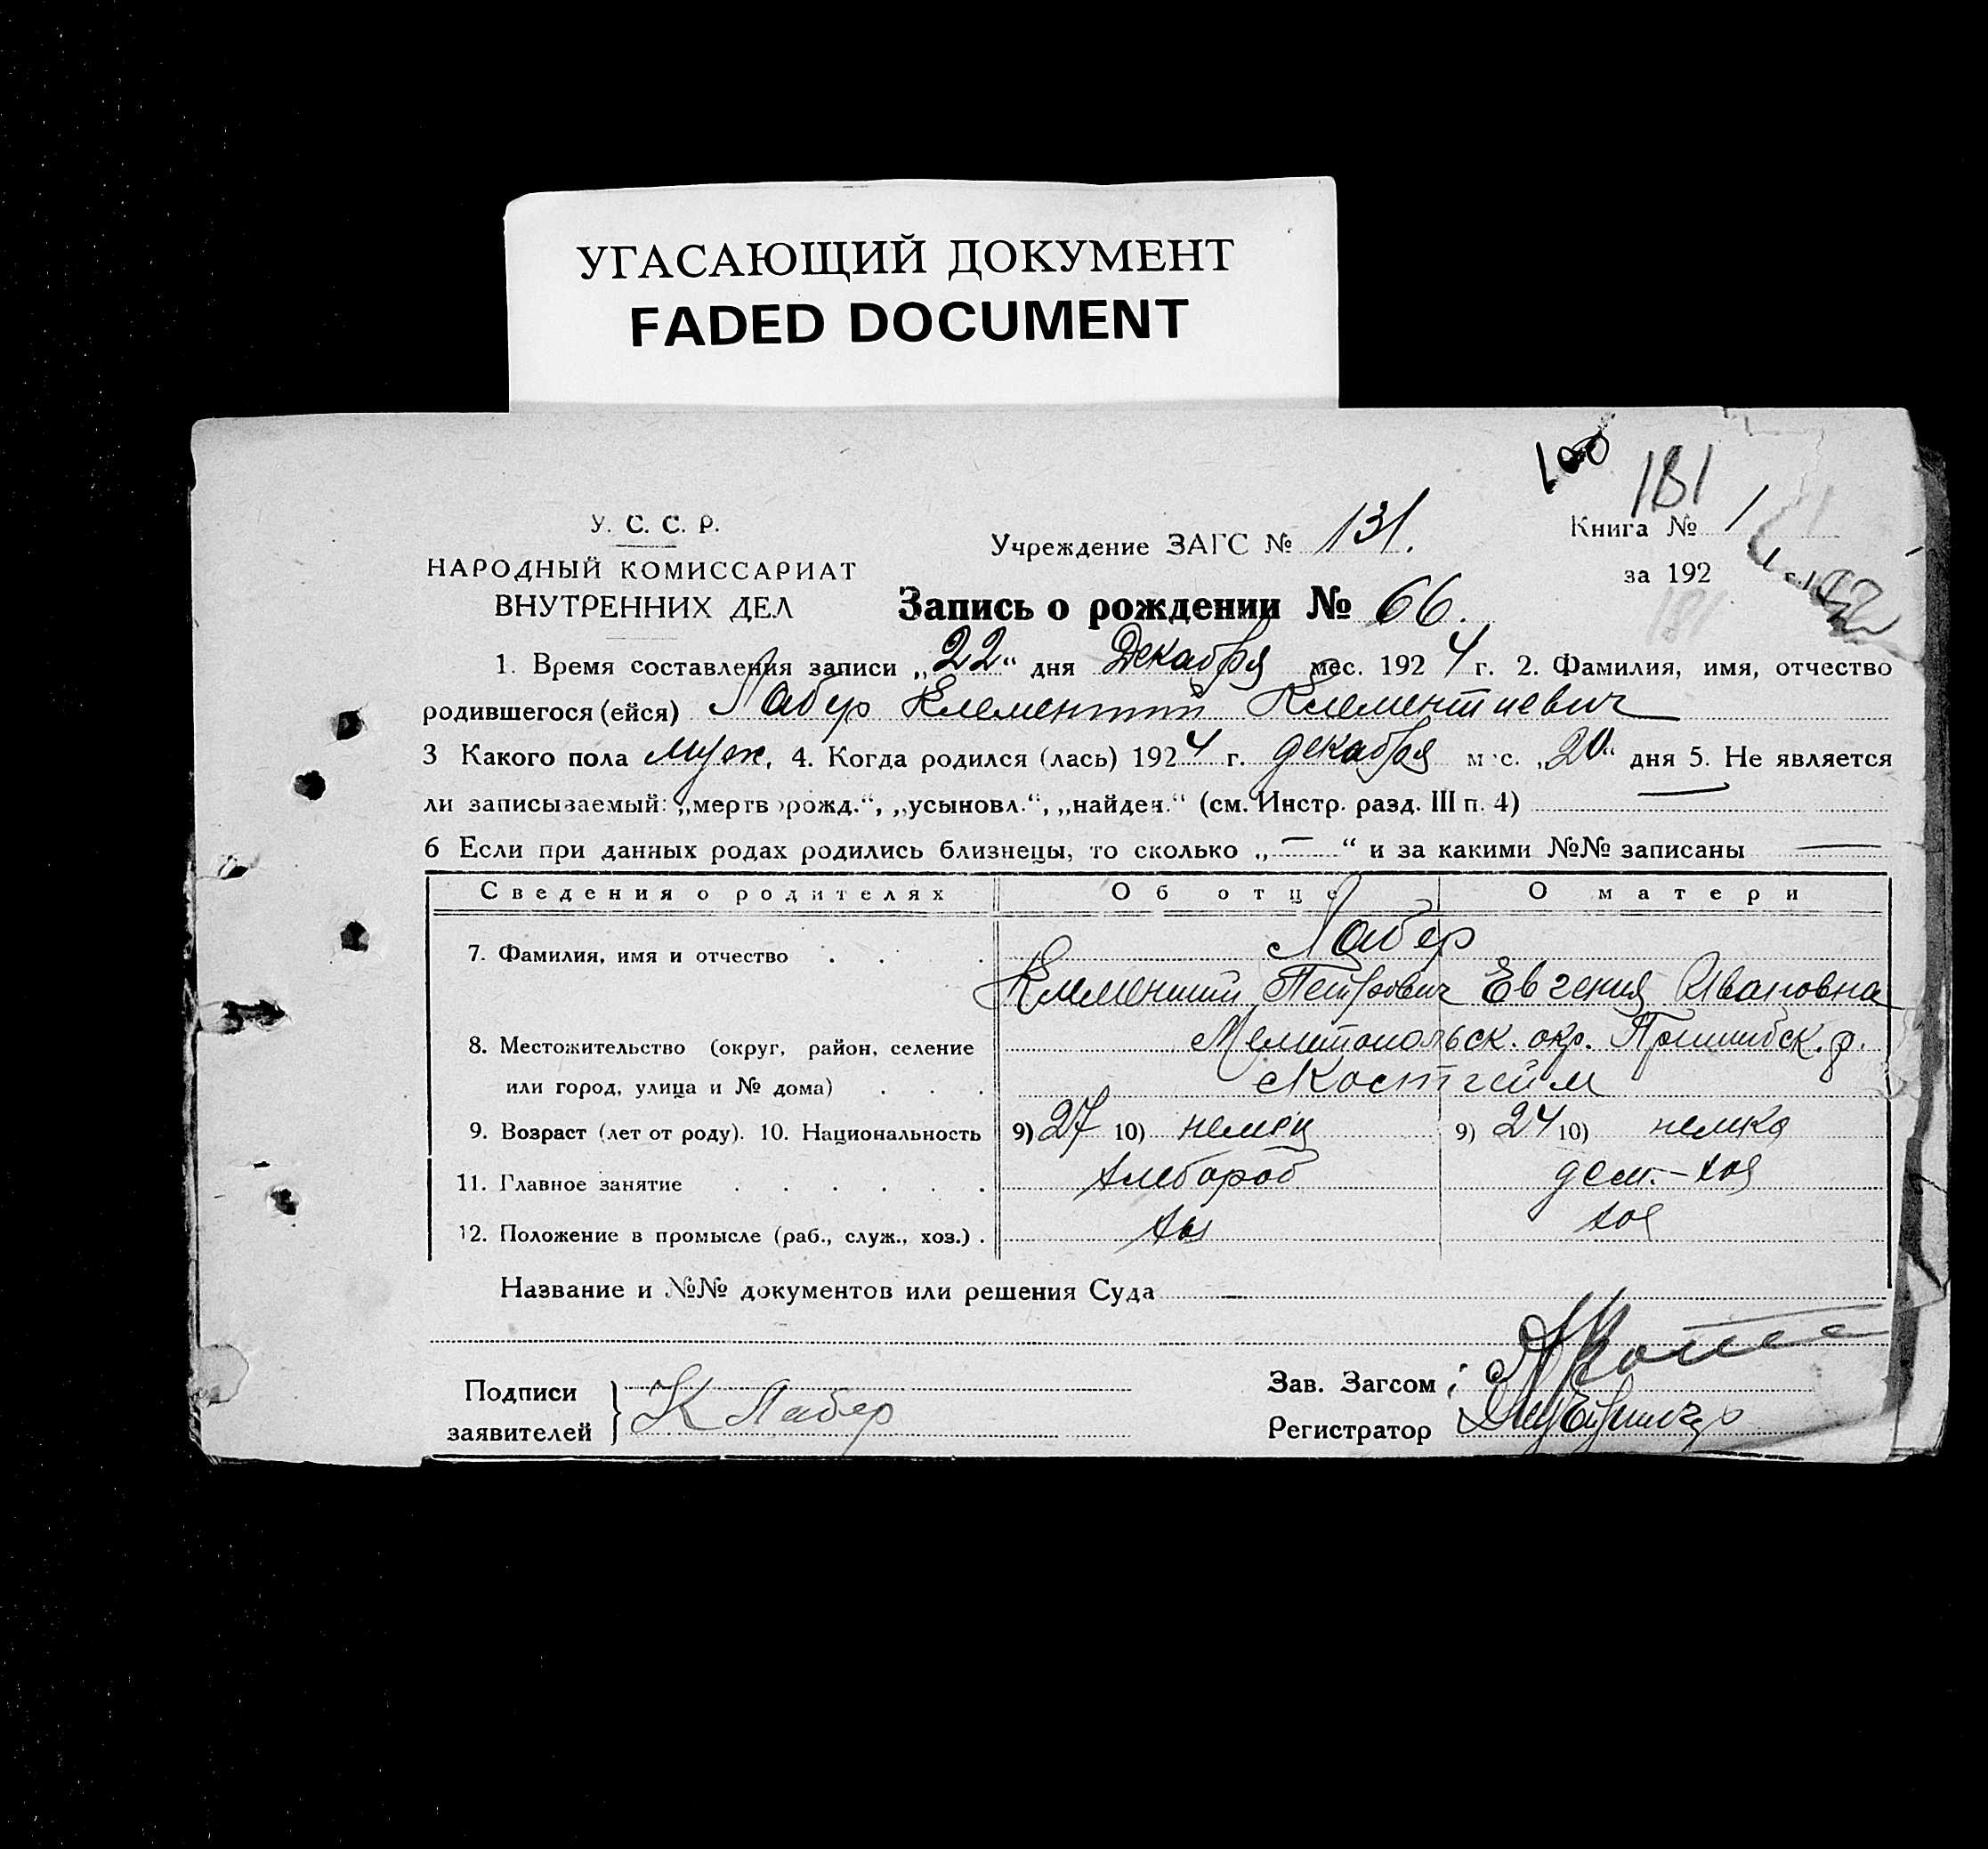 УГАСАЮЩИЙ ДОКУМЕНТ
FADED DOCUMENT
100
181
У. С. С. Р.
НАРОДНЫЙ КОМИССАРИАТ
ВНУТРЕННИХ ДЕЛ
Учреждение ЗАГС № 131.
Книга № 1
за 192
181
Запись о рождении № 66.
1. Время составления записи „22“ дня Декабря мес. 1924 г. 2. Фамилия, имя, отчество
родившегося (ейся) Лабер Клементий Клементиевич
3 Какого пола муж. 4. Когда родился (лась) 1924 г. декабря мес. „20“ дня 5. Не является
ли записываемый: „мертворожд.“, „усыновл.“, „найден.“ (см. Инстр. разд. III п. 4) —
6 Если при данных родах родились близнецы, то сколько „—“ и за какими №№ записаны —
Сведения о родителях Об отце О матери
7. Фамилия, имя и отчество Лабер
Клементий Петрович Евгения Ивановна
8. Местожительство (округ, район, селение Мелитопольск. окр. Пришибск. р.
или город, улица и № дома) с Костгейм
9. Возраст (лет от роду). 10. Национальность 9) 27 10) немец 9) 24 10) немка
11. Главное занятие хлебороб дом.-хоз
12. Положение в промысле (раб., служ., хоз.) хоз
Название и №№ документов или решения Суда —
Подписи
заявителей К Лабер
Зав. Загсом
Регистратор